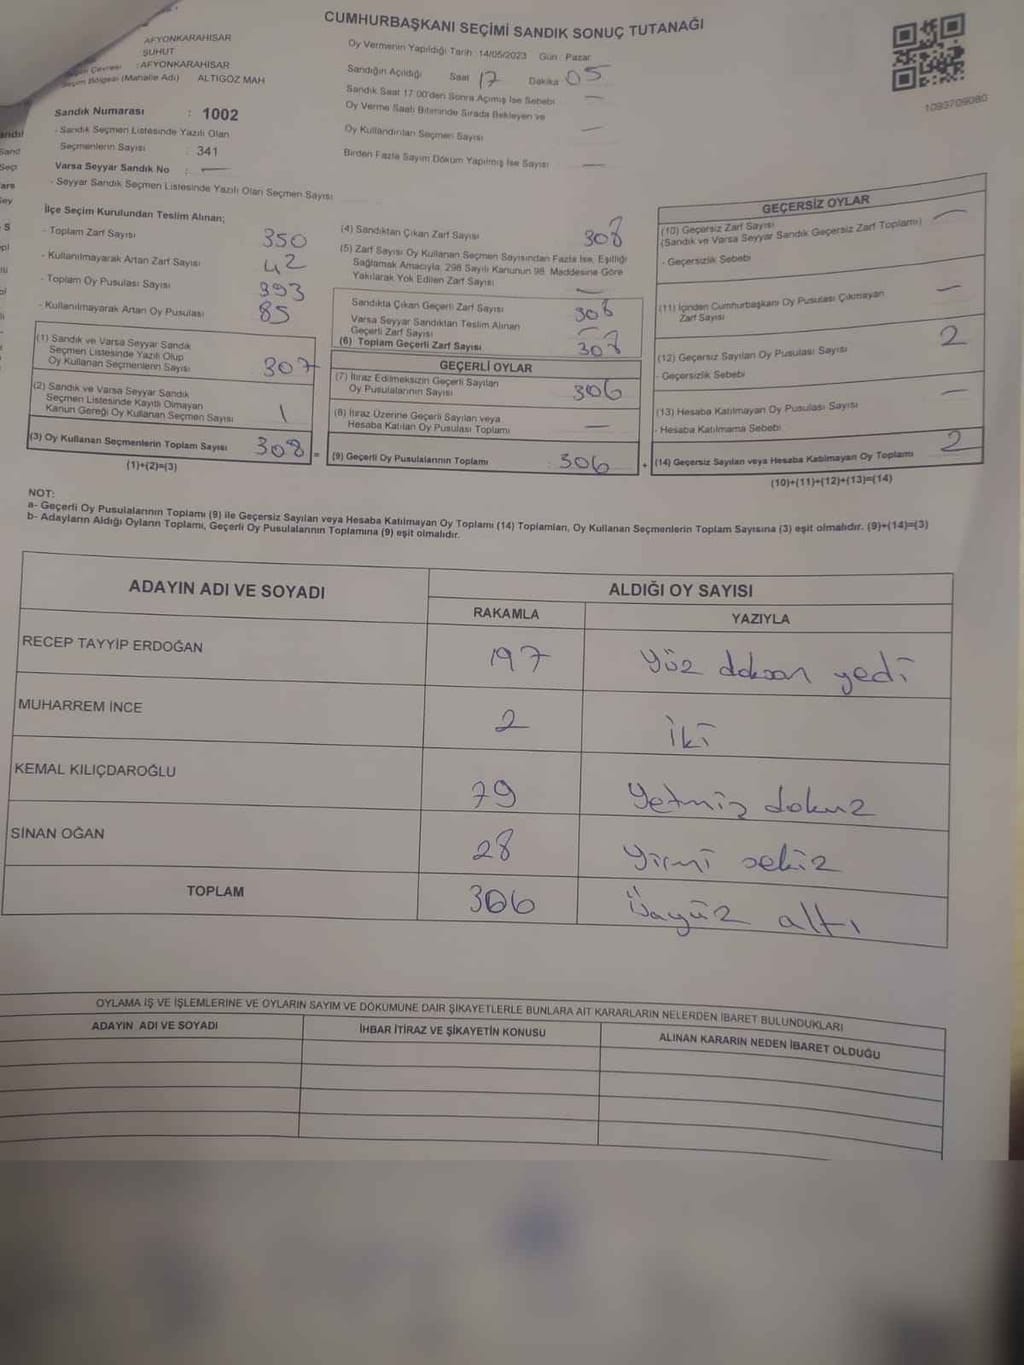 CUMHURBAŞKANI SEÇİMİ SANDIK SONUÇ TUTANAĞI
AFYONKARAHİSAR
ŞUHUT
Çevresi : AFYONKARAHİSAR
Seçim Bölgesi (Mahalle Adı) ALTIGÖZ MAH
Sandık Numarası : 1002
- Sandık Seçmen Listesinde Yazılı Olan
Seçmenlerin Sayısı : 341
Varsa Seyyar Sandık No : —
- Seyyar Sandık Seçmen Listesinde Yazılı Olan Seçmen Sayısı
Oy Vermenin Yapıldığı Tarih : 14/05/2023 Gün : Pazar
Sandığın Açıldığı Saat 17 Dakika 05
Sandık Saat 17:00'den Sonra Açımış İse Sebebi —
Oy Verme Saati Bitiminde Sırada Bekleyen ve
Oy Kullandırılan Seçmen Sayısı —
Birden Fazla Sayım Döküm Yapılmış İse Sayısı —
1093709080
İlçe Seçim Kurulundan Teslim Alınan;
- Toplam Zarf Sayısı 350
- Kullanılmayarak Artan Zarf Sayısı 42
- Toplam Oy Pusulası Sayısı 393
- Kullanılmayarak Artan Oy Pusulası 85
(1) Sandık ve Varsa Seyyar Sandık
Seçmen Listesinde Yazılı Olup
Oy Kullanan Seçmenlerin Sayısı 307
(2) Sandık ve Varsa Seyyar Sandık
Seçmen Listesinde Kayıtlı Olmayan
Kanun Gereği Oy Kullanan Seçmen Sayısı 1
(3) Oy Kullanan Seçmenlerin Toplam Sayısı 308 =
(1)+(2)=(3)
(4) Sandıktan Çıkan Zarf Sayısı 308
(5) Zarf Sayısı Oy Kullanan Seçmen Sayısından Fazla İse, Eşitliği
Sağlamak Amacıyla, 298 Sayılı Kanunun 98. Maddesine Göre
Yakılarak Yok Edilen Zarf Sayısı —
Sandıkta Çıkan Geçerli Zarf Sayısı 308
Varsa Seyyar Sandıktan Teslim Alınan
Geçerli Zarf Sayısı —
(6) Toplam Geçerli Zarf Sayısı 308
GEÇERLİ OYLAR
(7) İtiraz Edilmeksizin Geçerli Sayılan
Oy Pusulalarının Sayısı 306
(8) İtiraz Üzerine Geçerli Sayılan veya
Hesaba Katılan Oy Pusulası Toplamı —
(9) Geçerli Oy Pusulalarının Toplamı 306 +
GEÇERSİZ OYLAR
(10) Geçersiz Zarf Sayısı —
(Sandık ve Varsa Seyyar Sandık Geçersiz Zarf Toplamı)
- Geçersizlik Sebebi
(11) İçinden Cumhurbaşkanı Oy Pusulası Çıkmayan —
Zarf Sayısı
(12) Geçersiz Sayılan Oy Pusulası Sayısı 2
- Geçersizlik Sebebi
(13) Hesaba Katılmayan Oy Pusulası Sayısı —
- Hesaba Katılmama Sebebi
(14) Geçersiz Sayılan veya Hesaba Katılmayan Oy Toplamı 2
(10)+(11)+(12)+(13)=(14)
NOT:
a- Geçerli Oy Pusulalarının Toplamı (9) ile Geçersiz Sayılan veya Hesaba Katılmayan Oy Toplamı (14) Toplamları, Oy Kullanan Seçmenlerin Toplam Sayısına (3) eşit olmalıdır. (9)+(14)=(3)
b- Adayların Aldığı Oyların Toplamı, Geçerli Oy Pusulalarının Toplamına (9) eşit olmalıdır.
ADAYIN ADI VE SOYADI ALDIĞI OY SAYISI
RAKAMLA YAZIYLA
RECEP TAYYİP ERDOĞAN 197 Yüz doksan yedi
MUHARREM İNCE 2 İki
KEMAL KILIÇDAROĞLU 79 Yetmiş dokuz
SİNAN OĞAN 28 Yirmi sekiz
TOPLAM 306 Üçyüz altı
OYLAMA İŞ VE İŞLEMLERİNE VE OYLARIN SAYIM VE DÖKÜMÜNE DAİR ŞİKAYETLERLE BUNLARA AİT KARARLARIN NELERDEN İBARET BULUNDUKLARI
ADAYIN ADI VE SOYADI İHBAR İTİRAZ VE ŞİKAYETİN KONUSU ALINAN KARARIN NEDEN İBARET OLDUĞU